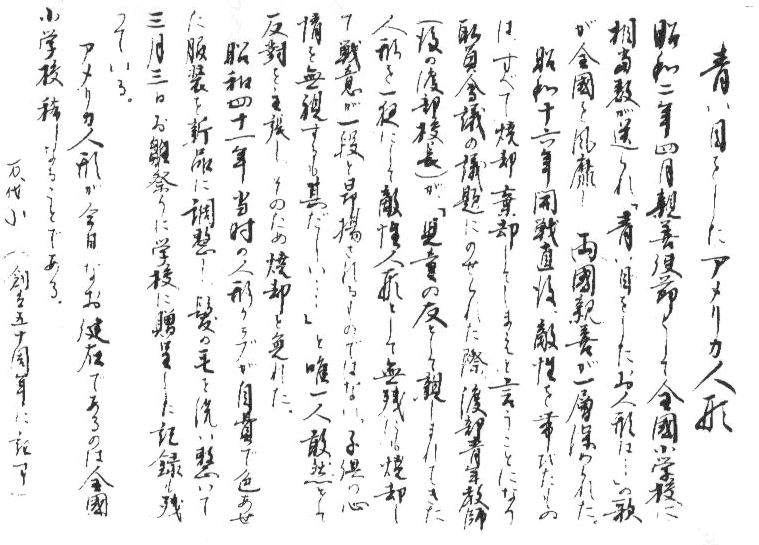 青い目をしたアメリカ人形
昭和二年四月親善使節として全國小学校に
相当数が送られ「青い目をしたお人形は…」の歌
が全國を風靡し両國親善が一層深められた。
昭和十六年開戦直後、敵性を帯びたもの
はすべて焼却棄却してしまえと言うことになり
職員会議の議題にのせられた際、渡部青年教師
(後の渡部校長)が、「児童の友として親しまれてきた
人形を一夜にして敵性人形として無残にも焼却し
て戦意が一段と昻揚されるものではない。子供の心
情を無視するも甚だしい…」と唯一人敢然として
反對を主張し、そのため焼却を免れた。
昭和四十一年当時の人形クラブが自費で色あせ
た服装を新品に調整し、髪の毛を洗い整いて
三月三日お雛祭りに学校に贈呈した記録も残
っている。
アメリカ人形が今日なお健在であるのは全國
小学校稀しなることである。
万代小(創立五十周年に記す)